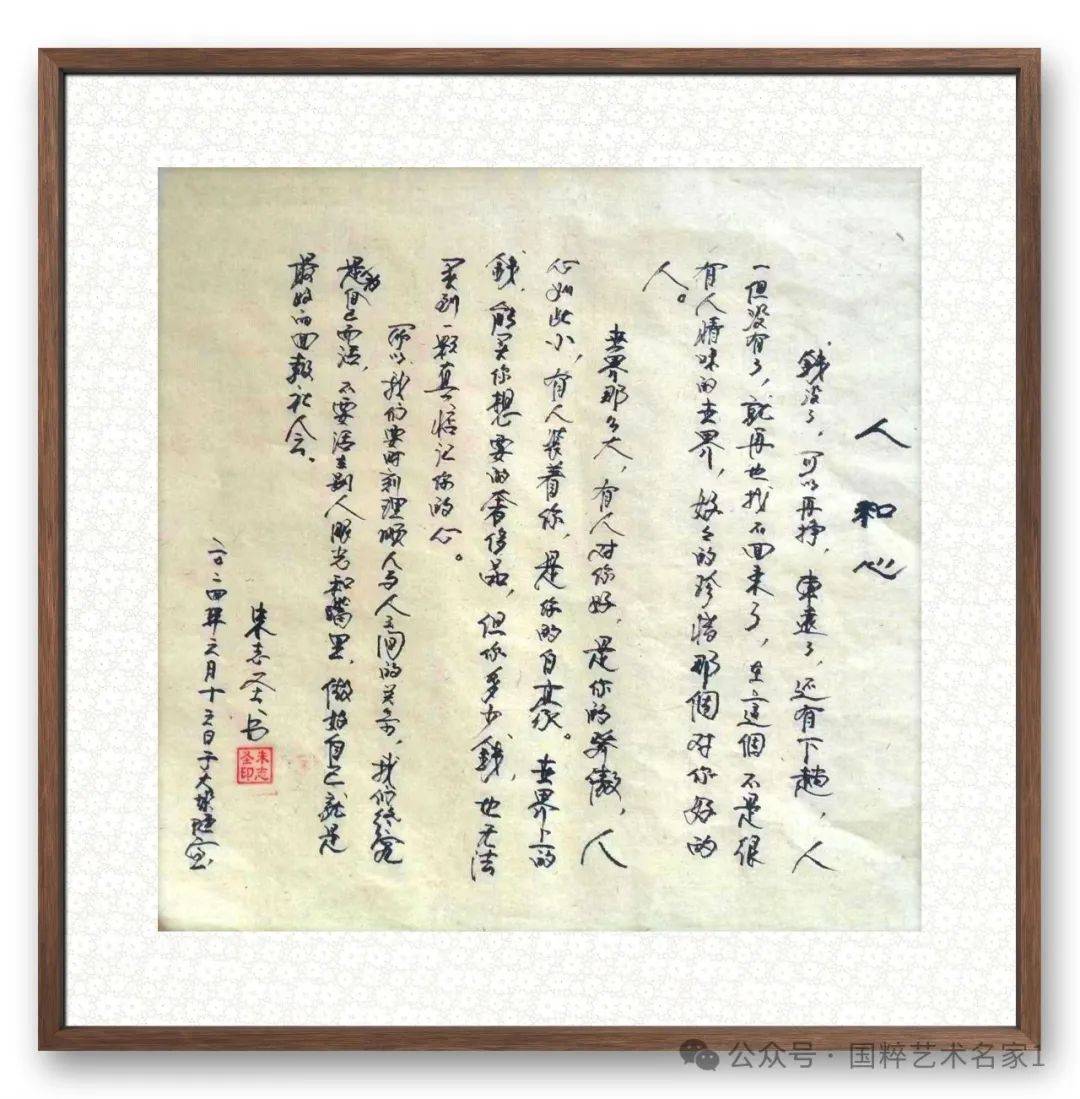 人和心
錢没了，可以再挣，車遠了，还有下趟，人
一但没有了，就再也找不回来了，在這個不是很
有人情味的世界，好好的珍惜那個对你好的
人。
世界那么大，有人对你好，是你的骄傲，人
心如此小，有人装着你，是你的自豪。世界上的
錢，能买你想要的奢侈品，但你多少錢，也无法
买到一颗真惦记你的心。
所以我们要时刻理顺人与人之间的关系，我们终究
是为自己而活，不要活在别人眼光和嘴里，做好自己就是
最好的回報社会、
朱志圣书
二〇二四年六月十五日于大
朱志圣印
公众号·国粹艺术名家1